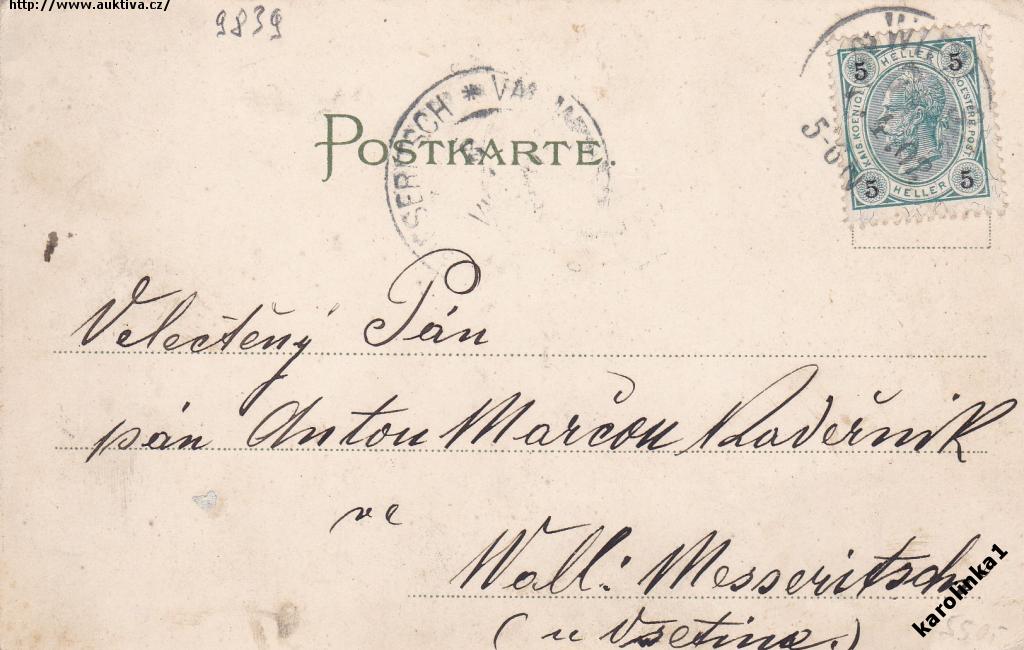 http://www.auktiva.cz/
9839
POSTKARTE.
SERITSCH * VAL
5 HELLER 5
KAIS. KOENIGL. OESTERR. POST
5 HELLER 5
02
5-6N
Velectěný Pán
pán Anton Marčou
ve
Wall: Messeritsch
(u Vsetina.)
karolinka1